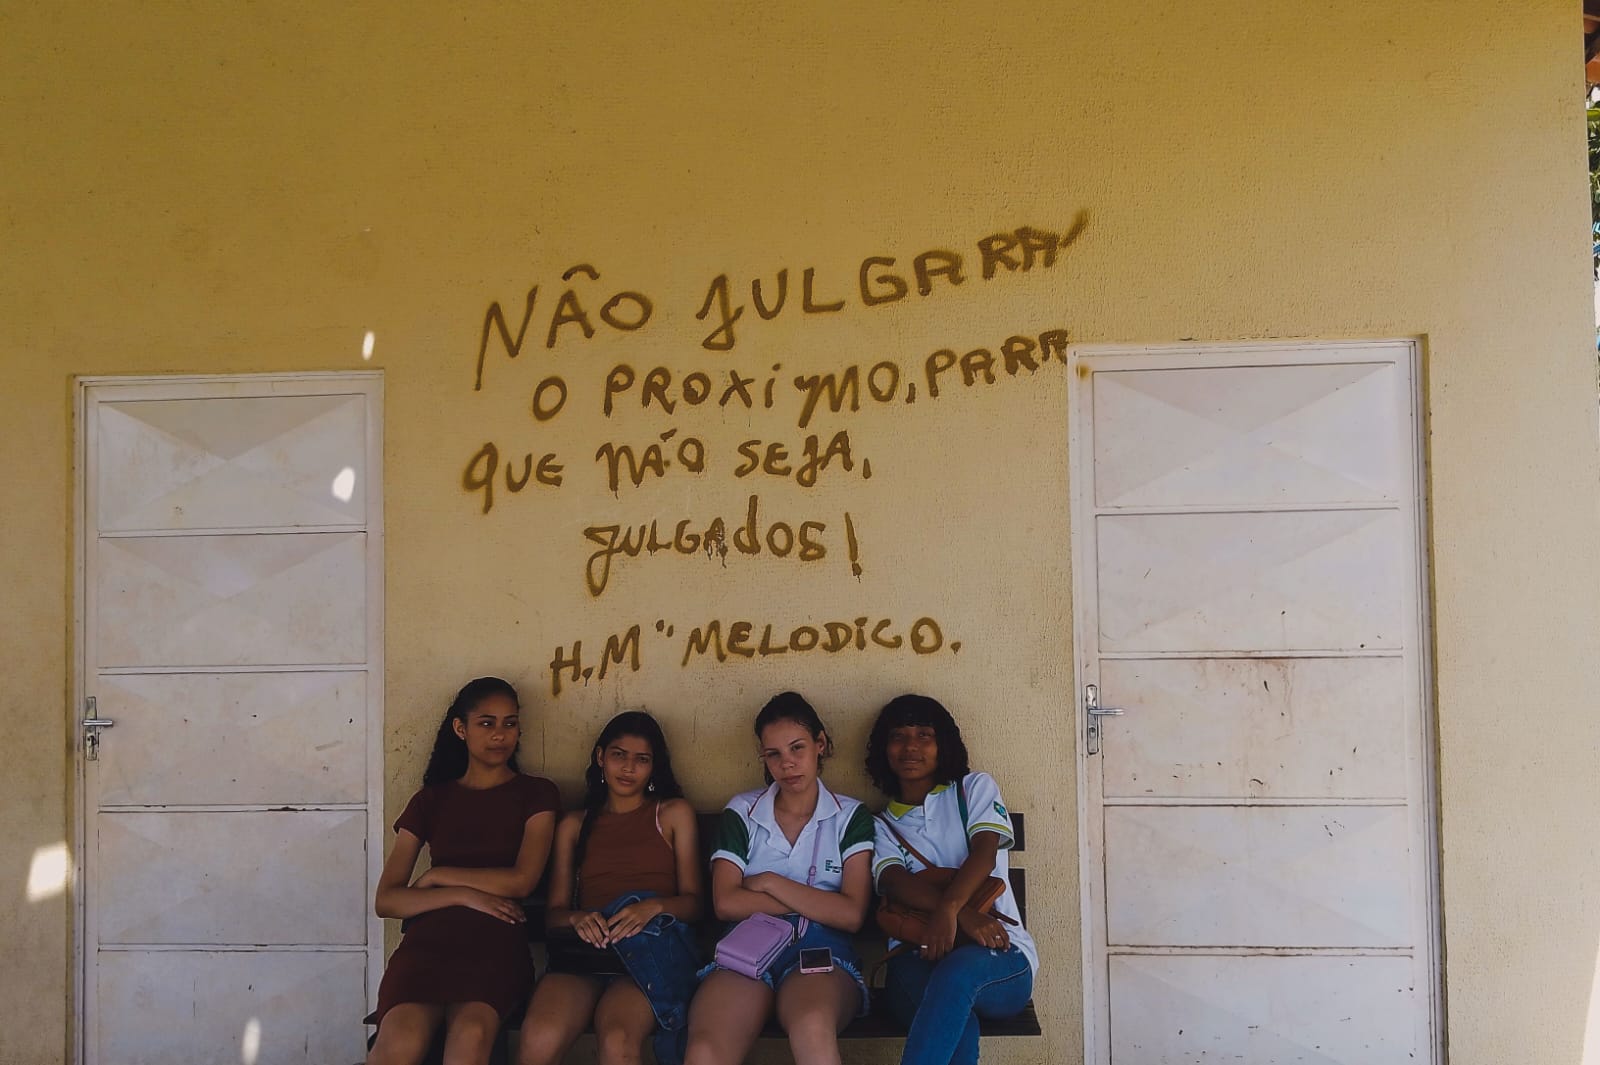 NÂO JULGARÁ
O PROXiYMO, PARA
QUE NÃO SEJA,
JULGAdOS!
H.M" MELODICO.